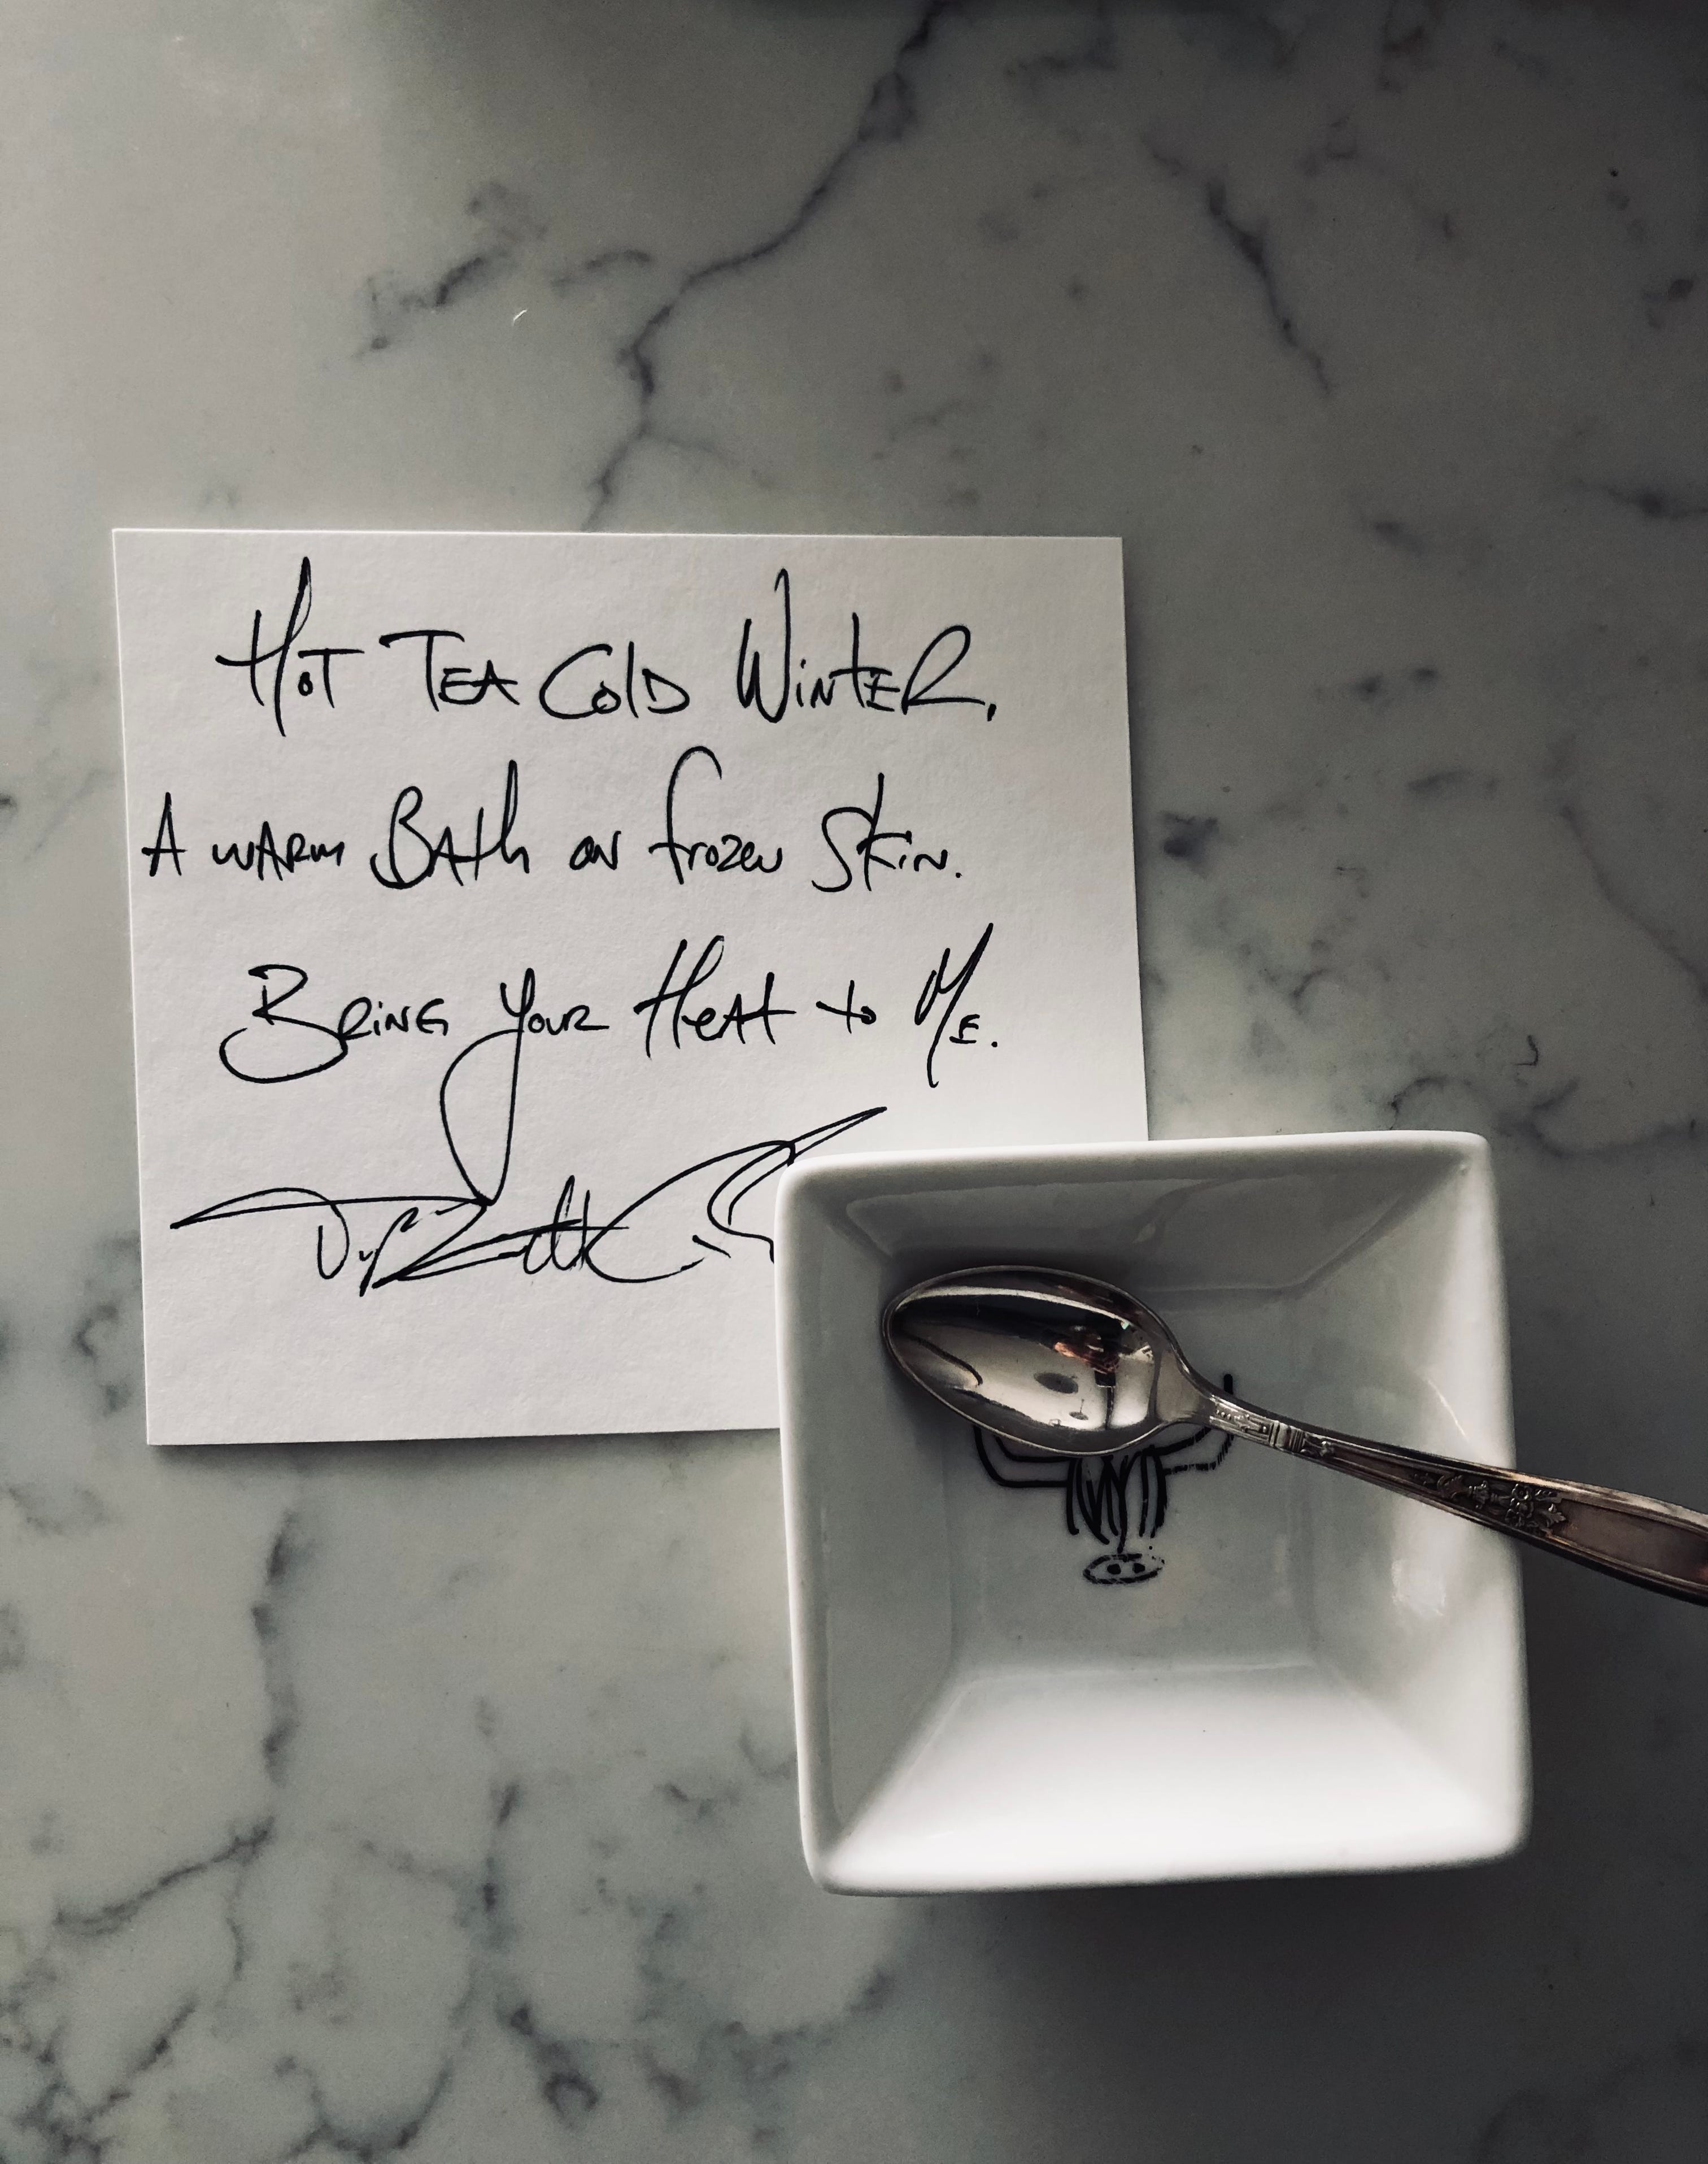 Hot Tea Cold Winter,
A warm Bath on frozen Skin.
Bring your Heat to Me.